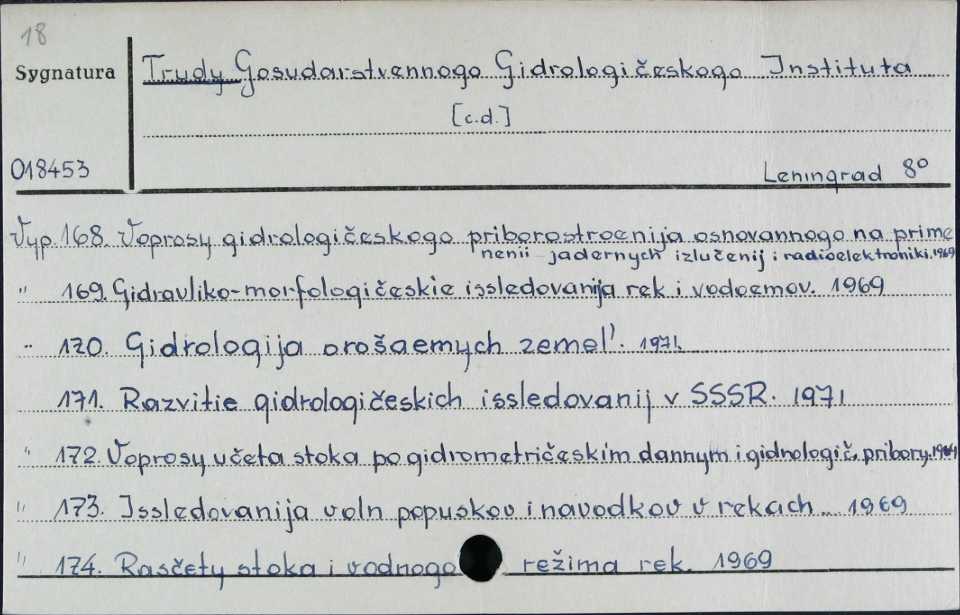 18
Sygnatura
Trudy Gosudarstvennogo Gidrologičeskogo Instituta
[c.d.]
018453
Leningrad 8°
Vyp. 168. Voprosy gidrologičeskogo priborostroenija osnovannogo na prime
nenii jadernych izlučenij i radioelektroniki. 1969
" 169. Gidravliko-morfologičeskie issledovanija rek i vodoemov. 1969
" 170. Gidrologija orošaemych zemel'. 1971.
171. Razvitie gidrologičeskich issledovanij v SSSR. 1971
" 172. Voprosy učeta stoka po gidrometričeskim dannym i gidrologič. pribory.
" 173. Issledovanija voln popuskov i navodkov v rekach. 1969
" 174. Rasčety stoka i vodnogo režima rek. 1969